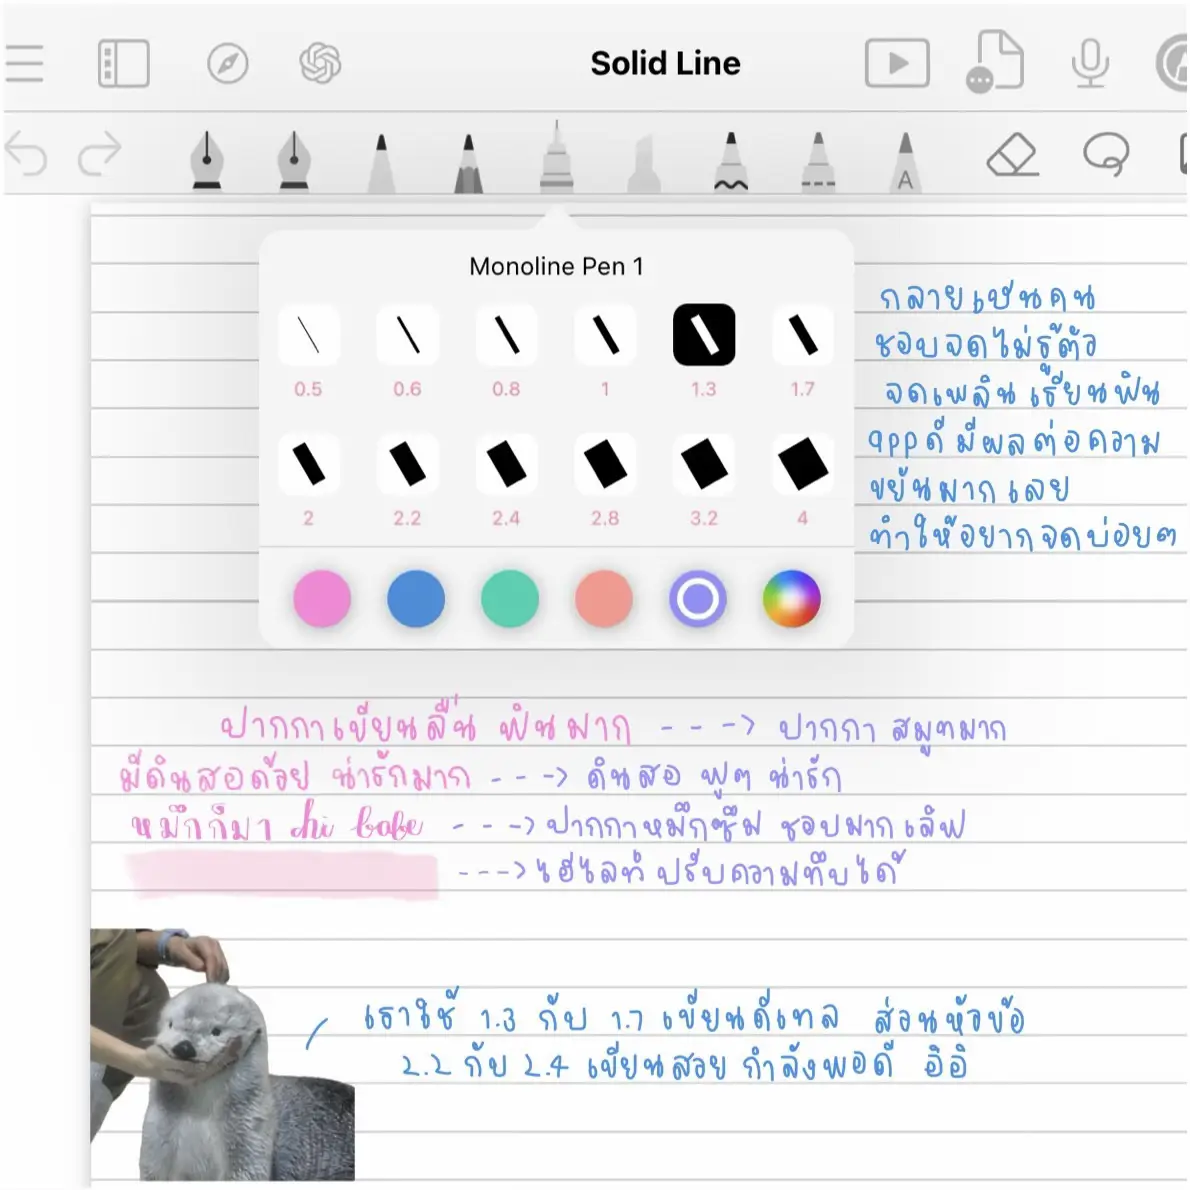 Solid Line
A
Monoline Pen 1
0.5 0.6 0.8 1 1.3 1.7
2 2.2 2.4 2.8 3.2 4
กลายเป็นคน
ชอบจดไม่รู้ตัว
จดเพลิน เรียนฟิน
appดี มีผลต่อความ
ขยันมากเลย
ทำให้อยากจดบ่อยๆ
ปากกาเขียนลื่น ฟินมาก ---> ปากกา สมูทมาก
มีดินสอด้วย น่ารักมาก ---> ดินสอ ฟูๆ น่ารัก
หมึกก็มา chi babe ---> ปากกาหมึกซึม ชอบมากเลิฟ
---> ไฮไลท์ ปรับความทึบได้
เราใช้ 1.3 กับ 1.7 เขียนดีเทล ส่วนหัวข้อ
2.2 กับ 2.4 เขียนสวย กำลังพอดี อิอิ